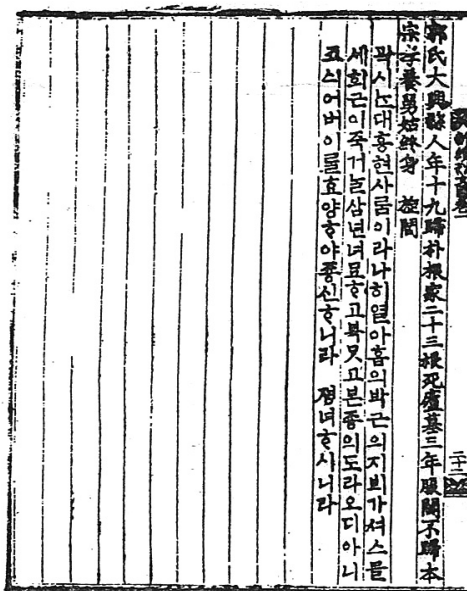 二十二
郭氏大興縣人年十九歸朴根家二十三根死廬墓三年服闋不歸本
宗孝養舅姑終身 旌閭
곽시ᄂᆞᆫ대흥현사ᄅᆞᆷ이라나히열아홉의박근의지븨가셔스믈
세희근이죽거ᄂᆞᆯ삼년녀묘ᄒᆞ고복ᄆᆞᆺ고본종의도라오디아니
고싀어버이ᄅᆞᆯ효양ᄒᆞ야죵신ᄒᆞ니라 졍녀ᄒᆞ시니라